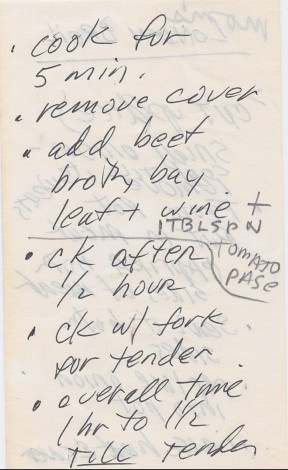 • cook for
5 min.
• remove cover
• add beef
broth, bay
leaf + wine +
1 TBLSPN
TOMATO
PASE
• ck after
1/2 hour
• ck w/ fork
for tender
• overall time
1 hr to 1 1/2
till tender